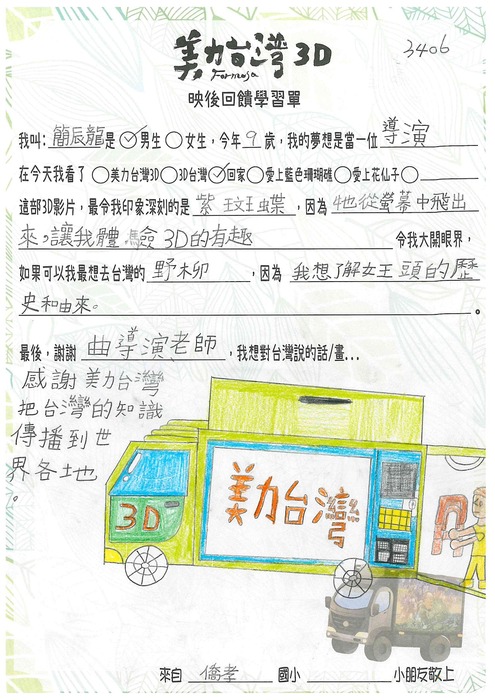 美力台灣3D
Formosa
3406
映後回饋學習單
我叫:簡辰龍是○✓男生○女生,今年9歲,我的夢想是當一位導演
在今天我看了○美力台灣3D○3D台灣○✓回家○愛上藍色珊瑚礁○愛上花仙子○
這部3D影片,最令我印象深刻的是紫斑蝶,因為牠從螢幕中飛出
來,讓我體驗3D的有趣令我大開眼界,
如果可以我最想去台灣的野柳,因為我想了解女王頭的歷
史和由來。
最後,謝謝曲導演老師,我想對台灣說的話/畫...
感謝美力台灣
把台灣的知識
傳播到世
界各地
。
美力台灣
3D
來自僑孝國小小朋友敬上